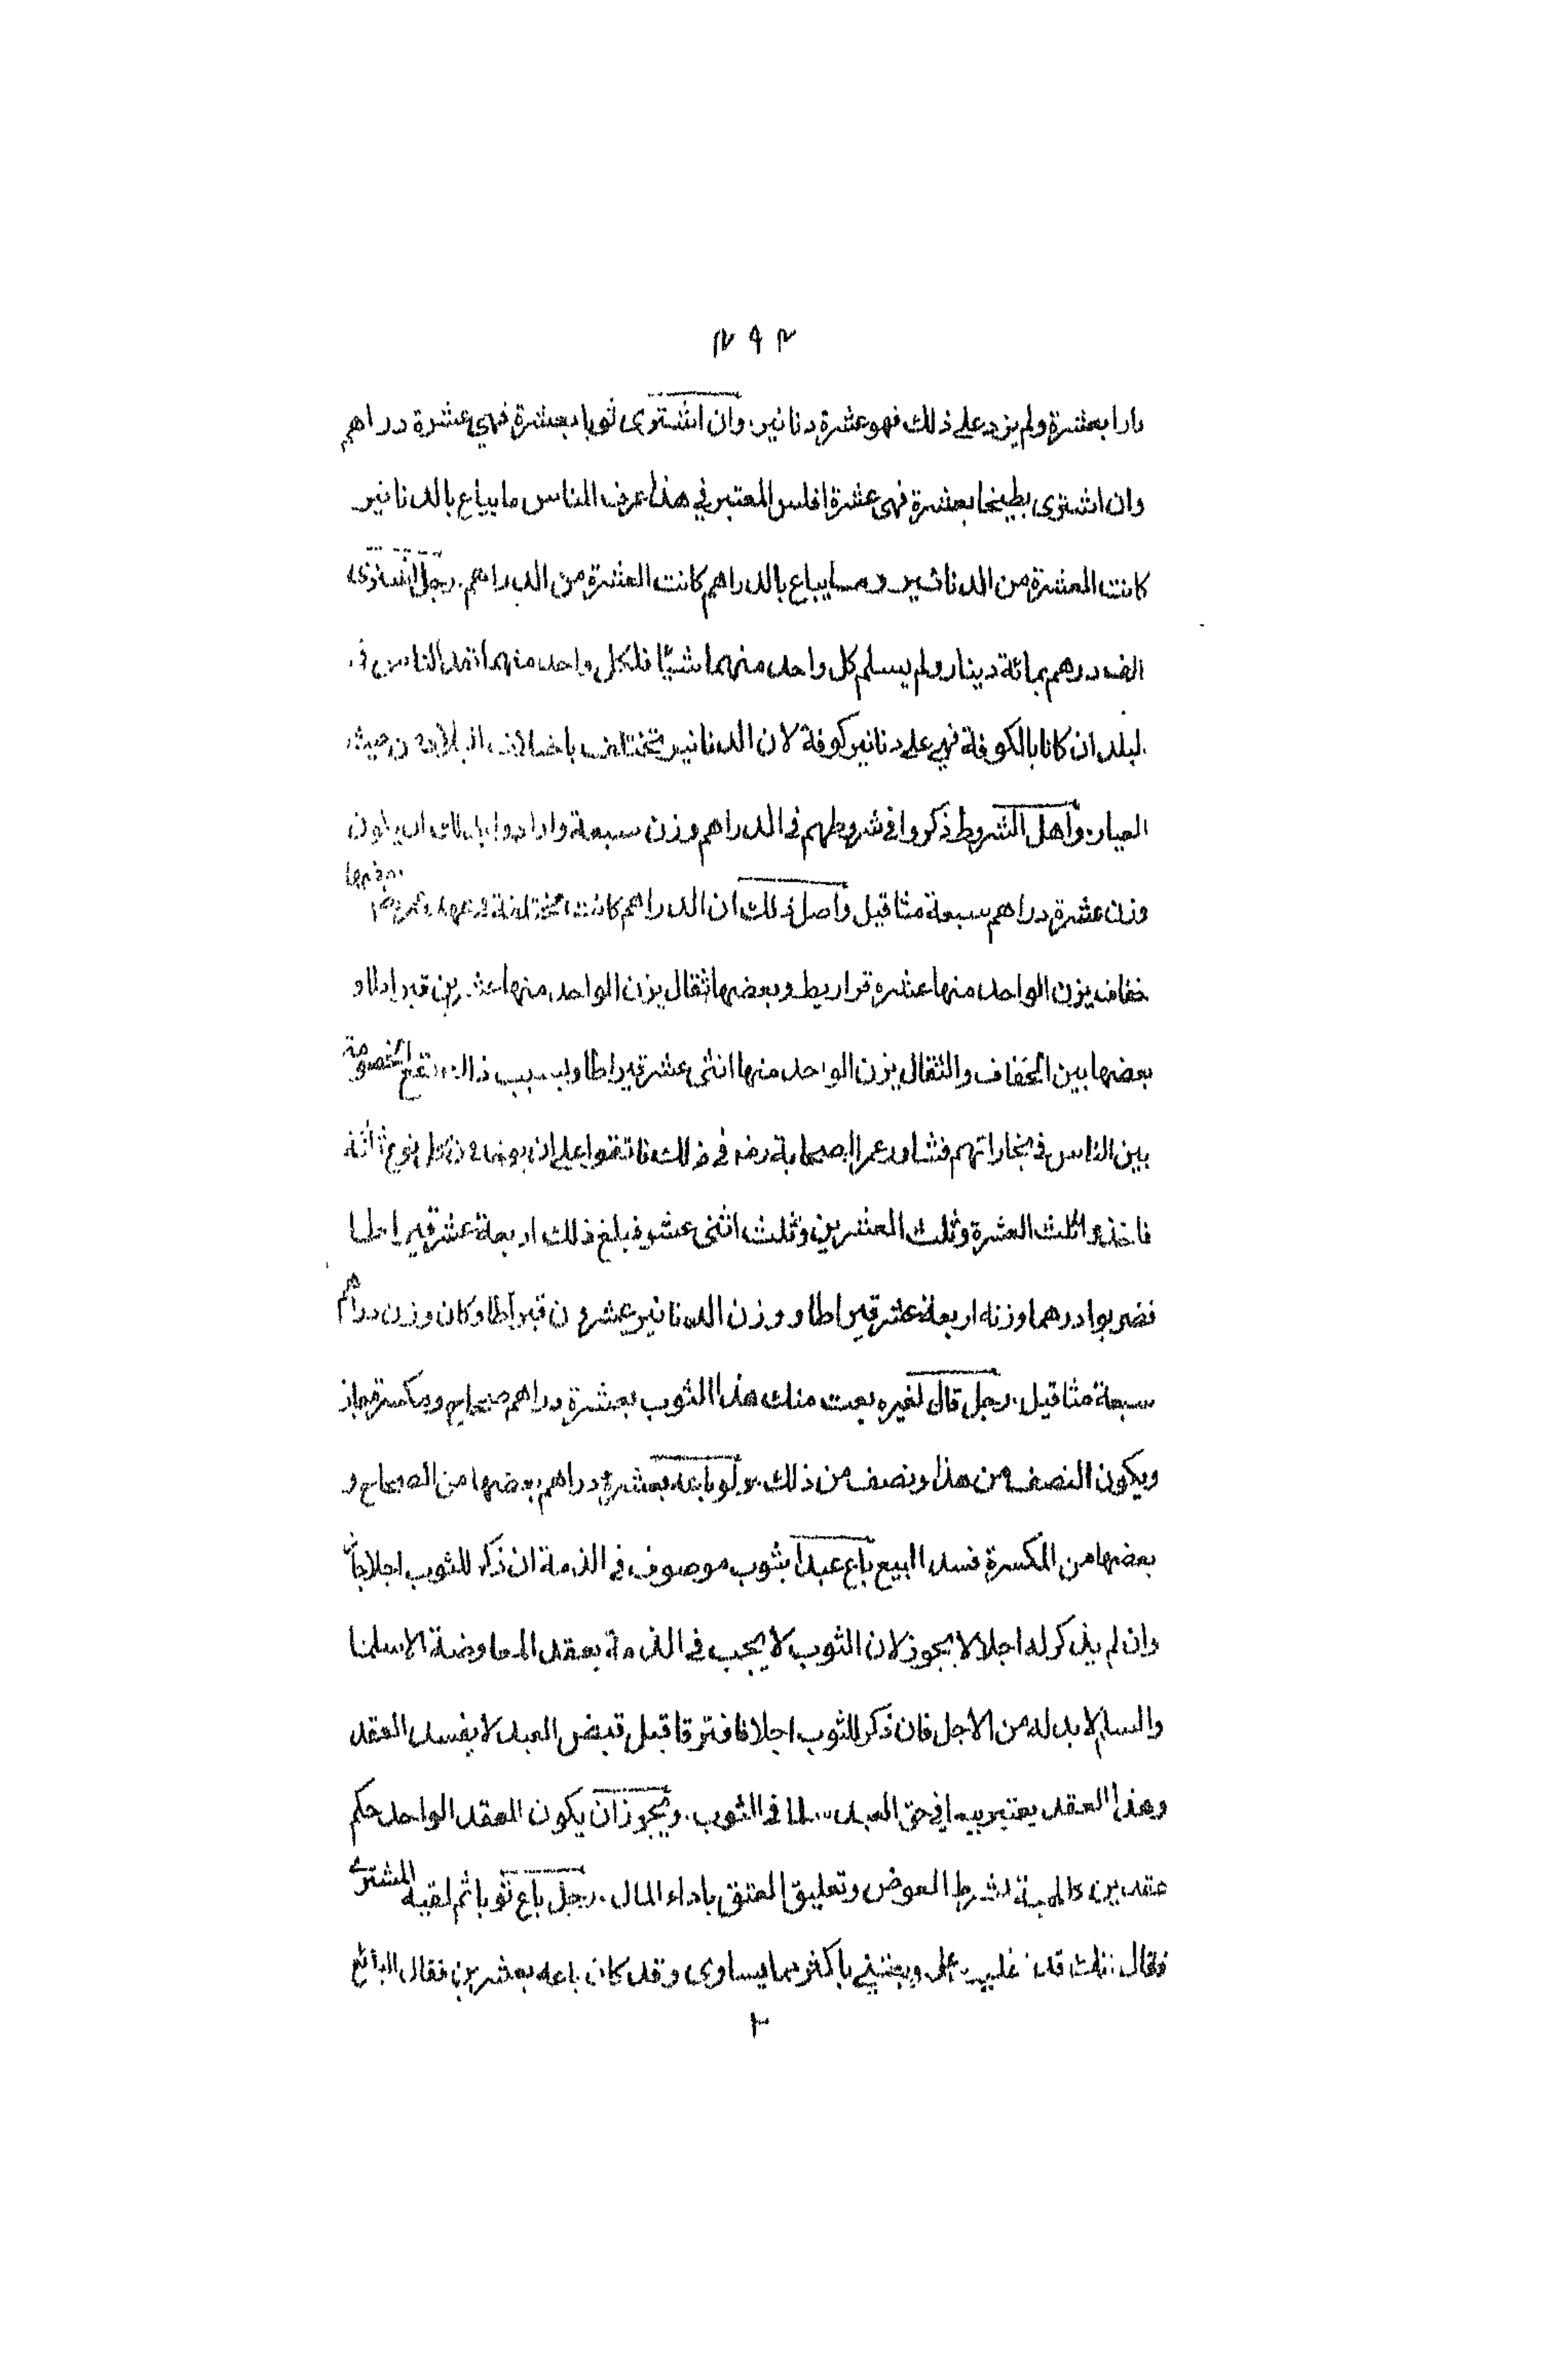 ٢٩٢
دارا بعشرة ولم يزد على ذلك فهو عشرة دنانير، وان اشترى ثوبا بعشرة فهي عشرة دراهم
وان اشترى بطيخا بعشرة فهى عشرة افلس المعتبر في هذا عرف الناس ما يباع بالدنانير
كانت العشرة من الدنانير وما يباع بالدراهم كانت العشرة من الدراهم. رجل اشترى
الف درهم بمائة دينار ولم يسلم كل واحد منهما شيئا فلكل واحد منهما نقد الناس في
البلد ان كانا بالكوفة فهي على دنانير كوفة لان الدنانير تختلف باختلاف البلاد من حيث
العيار، واهل الشروط ذكروا في شروطهم في الدراهم وزن سبعة وارادوا بذلك ان يكون
وزن عشرة دراهم سبعة مثاقيل واصل ذلك ان الدراهم كانت مختلفة في عهد عمر رض بعضها
خفاف يزن الواحد منها عشرة قراريط وبعضها ثقال يزن الواحد منها عشرين قيراطا و
بعضها بين الخفاف والثقال يزن الواحد منها اثنى عشر قيراطا وبسبب ذلك تقع الخصومة
بين الناس في تجاراتهم فشاور عمر الصحابة رضه في ذلك فاتفقوا على ان يوخذ من كل نوع ثلثه
فاخذوا ثلث العشرة وثلث العشرين وثلث اثنى عشر فبلغ ذلك اربعة عشر قيراطا
فضربوا درهما وزنه اربعة عشر قيراطا ووزن الدنانير عشرون قيراطا وكان وزن دراهم
سبعة مثاقيل. رجل قال لغيره بعت منك هذا الثوب بعشرة دراهم صحاح ومكسرة جاز
ويكون النصف من هذا ونصف من ذلك. ولو باعه بعشرة دراهم بعضها من الصحاح و
بعضها من المكسرة فسد البيع باع عبدا بثوب موصوف في الذمة ان ذكر للثوب اجلا جاز
وان لم يذكر له اجلا لا يجوز لان الثوب لا يجب في الذمة بعقد المعاوضة الا سلما
والسلم لا بد له من الاجل فان ذكر للثوب اجلا فافترقا قبل قبض العبد لا يفسد العقد
وهذا العقد يعتبر بيعا في حق العبد سلما في الثوب. ويجوز ان يكون العقد الواحد حكم
عقدين كالهبة بشرط العوض وتعليق العتق باداء المال. رجل باع ثوبا ثم لقيه المشترى
فقال قد غليت على وبعتني باكثر مما يساوى وقد كان باعه بعشرين فقال البائع
٢